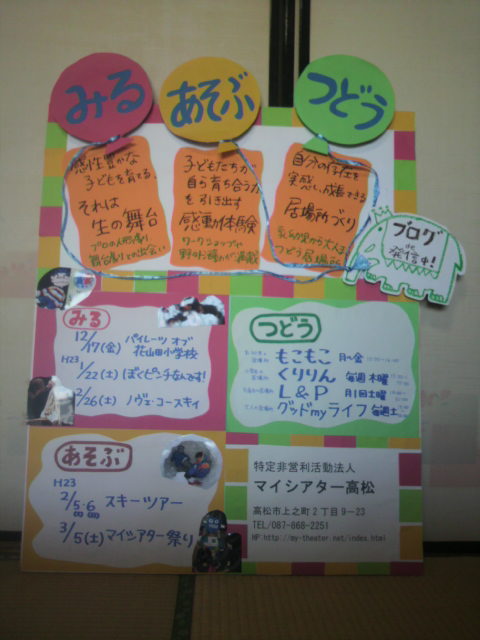 みる
あそぶ
つどう
感性豊かな
子どもを育てる、
それは
生の舞台
プロの人形劇
舞台劇との出会い
子どもたちが
自ら育ち合う力
を引き出す
感動体験
ワークショップや
自分の存在を
実感し、成長できる
居場所づくり
乳幼児から大人まで
つどう居場所
ブログ
de
発信中!
みる
12/17(金) パイレーツ オブ
花山田小学校
H23
1/22(土) ぼくピンチなんです!
2/26(土) ノヴェ・コースキィ
つどう
もこもこ 月〜金
くりりん 毎週木曜
L&P 月1回土曜
グッドmyライフ 毎週土
あそぶ
H23
2/5,6 スキーツアー
3/5(土) マイシアター祭り
特定非営利活動法人
マイシアター高松
高松市上之町2丁目9−23
TEL/087-868-2251
HP:http://my-theater.net/index.html